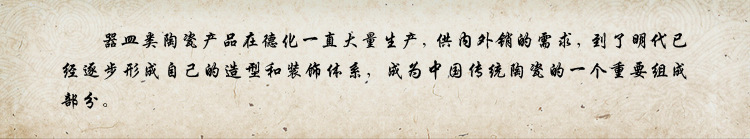 器皿类陶瓷产品在德化一直大量生产，供内外销的需求，到了明代已
经逐步形成自己的造型和装饰体系，成为中国传统陶瓷的一个重要组成
部分。